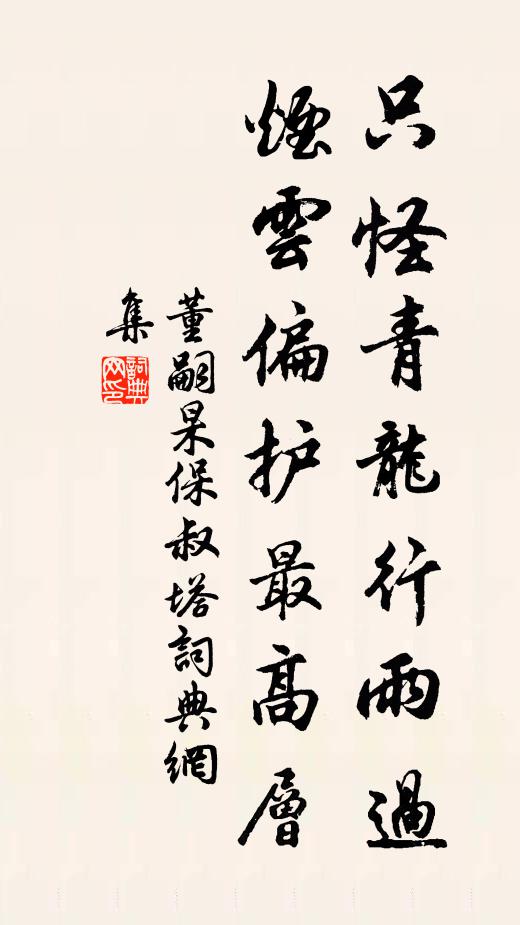 只怪青龍行雨過
煙雲偏护最高層
董嗣杲保叔塔詞典網
集
詞典
网印